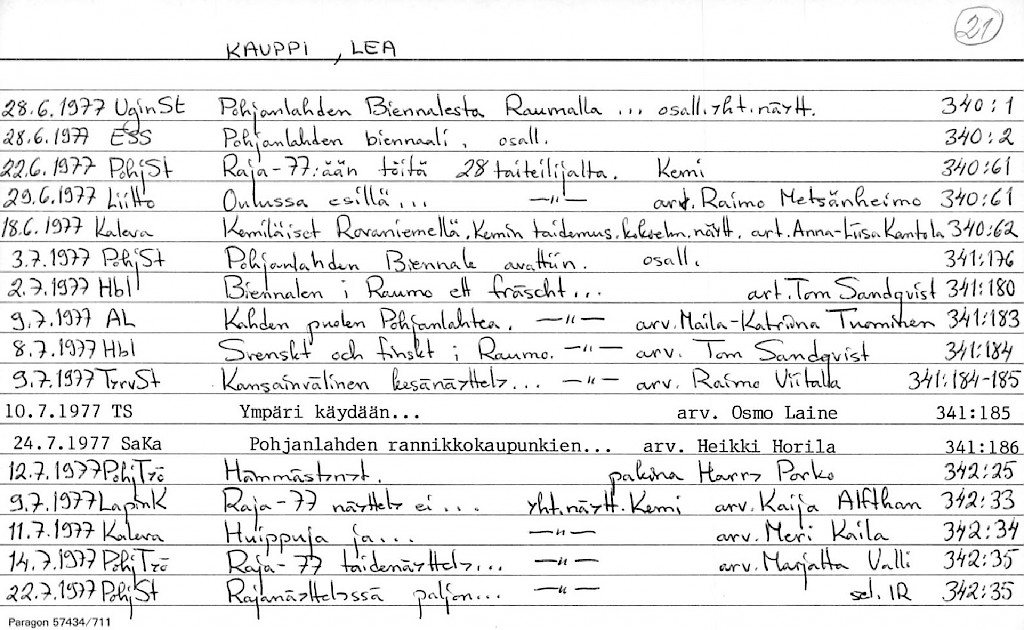 21
KAUPPI, LEA
28.6.1977 UginSt Pohjanlahden Biennalesta Raumalla ... osall. yht. näytt. 340:1
28.6.1977 ESS Pohjanlahden biennaali, osall. 340:2
22.6.1977 PohjSt Raja-77:ään töitä 28 taiteilijalta. Kemi 340:61
29.6.1977 Liitto Oulussa esillä... —"— art. Raimo Metsänheimo 340:61
18.6.1977 Kaleva Kemiläiset Rovaniemellä. Kemin taidemus. kokoelm. näytt. art. Anna-Liisa Kantola 340:62
3.7.1977 PohjSt Pohjanlahden Biennale avattiin. osall. 341:176
2.7.1977 Hbl Biennalen i Raumo ett fräscht... art. Tom Sandqvist 341:180
9.7.1977 AL Kahden puolen Pohjanlahtea. —"— arv. Maila-Katriina Tuominen 341:183
8.7.1977 Hbl Svenskt och finskt i Raumo. —"— arv. Tom Sandqvist 341:184
9.7.1977 TyrvSt Kansainvälinen kesänäyttely... —"— arv. Raimo Viitala 341:184-185
10.7.1977 TS Ympäri käydään... arv. Osmo Laine 341:185
24.7.1977 SaKa Pohjanlahden rannikkokaupunkien... arv. Heikki Horila 341:186
12.7.1977 PohjTyö Hämmästynyt. pakina Harry Porko 342:25
9.7.1977 LapinK Raja-77 näyttely ei... yht. näytt. Kemi arv. Kaija Alfthan 342:33
11.7.1977 Kaleva Huippuja ja... —"— arv. Meri Kaila 342:34
14.7.1977 PohjTyö Raja-77 taidenäyttely... —"— arv. Marjatta Valli 342:35
22.7.1977 PohjSt Rajanäyttelyssä paljon... —"— sel. IR 342:35
Paragon 57434/711